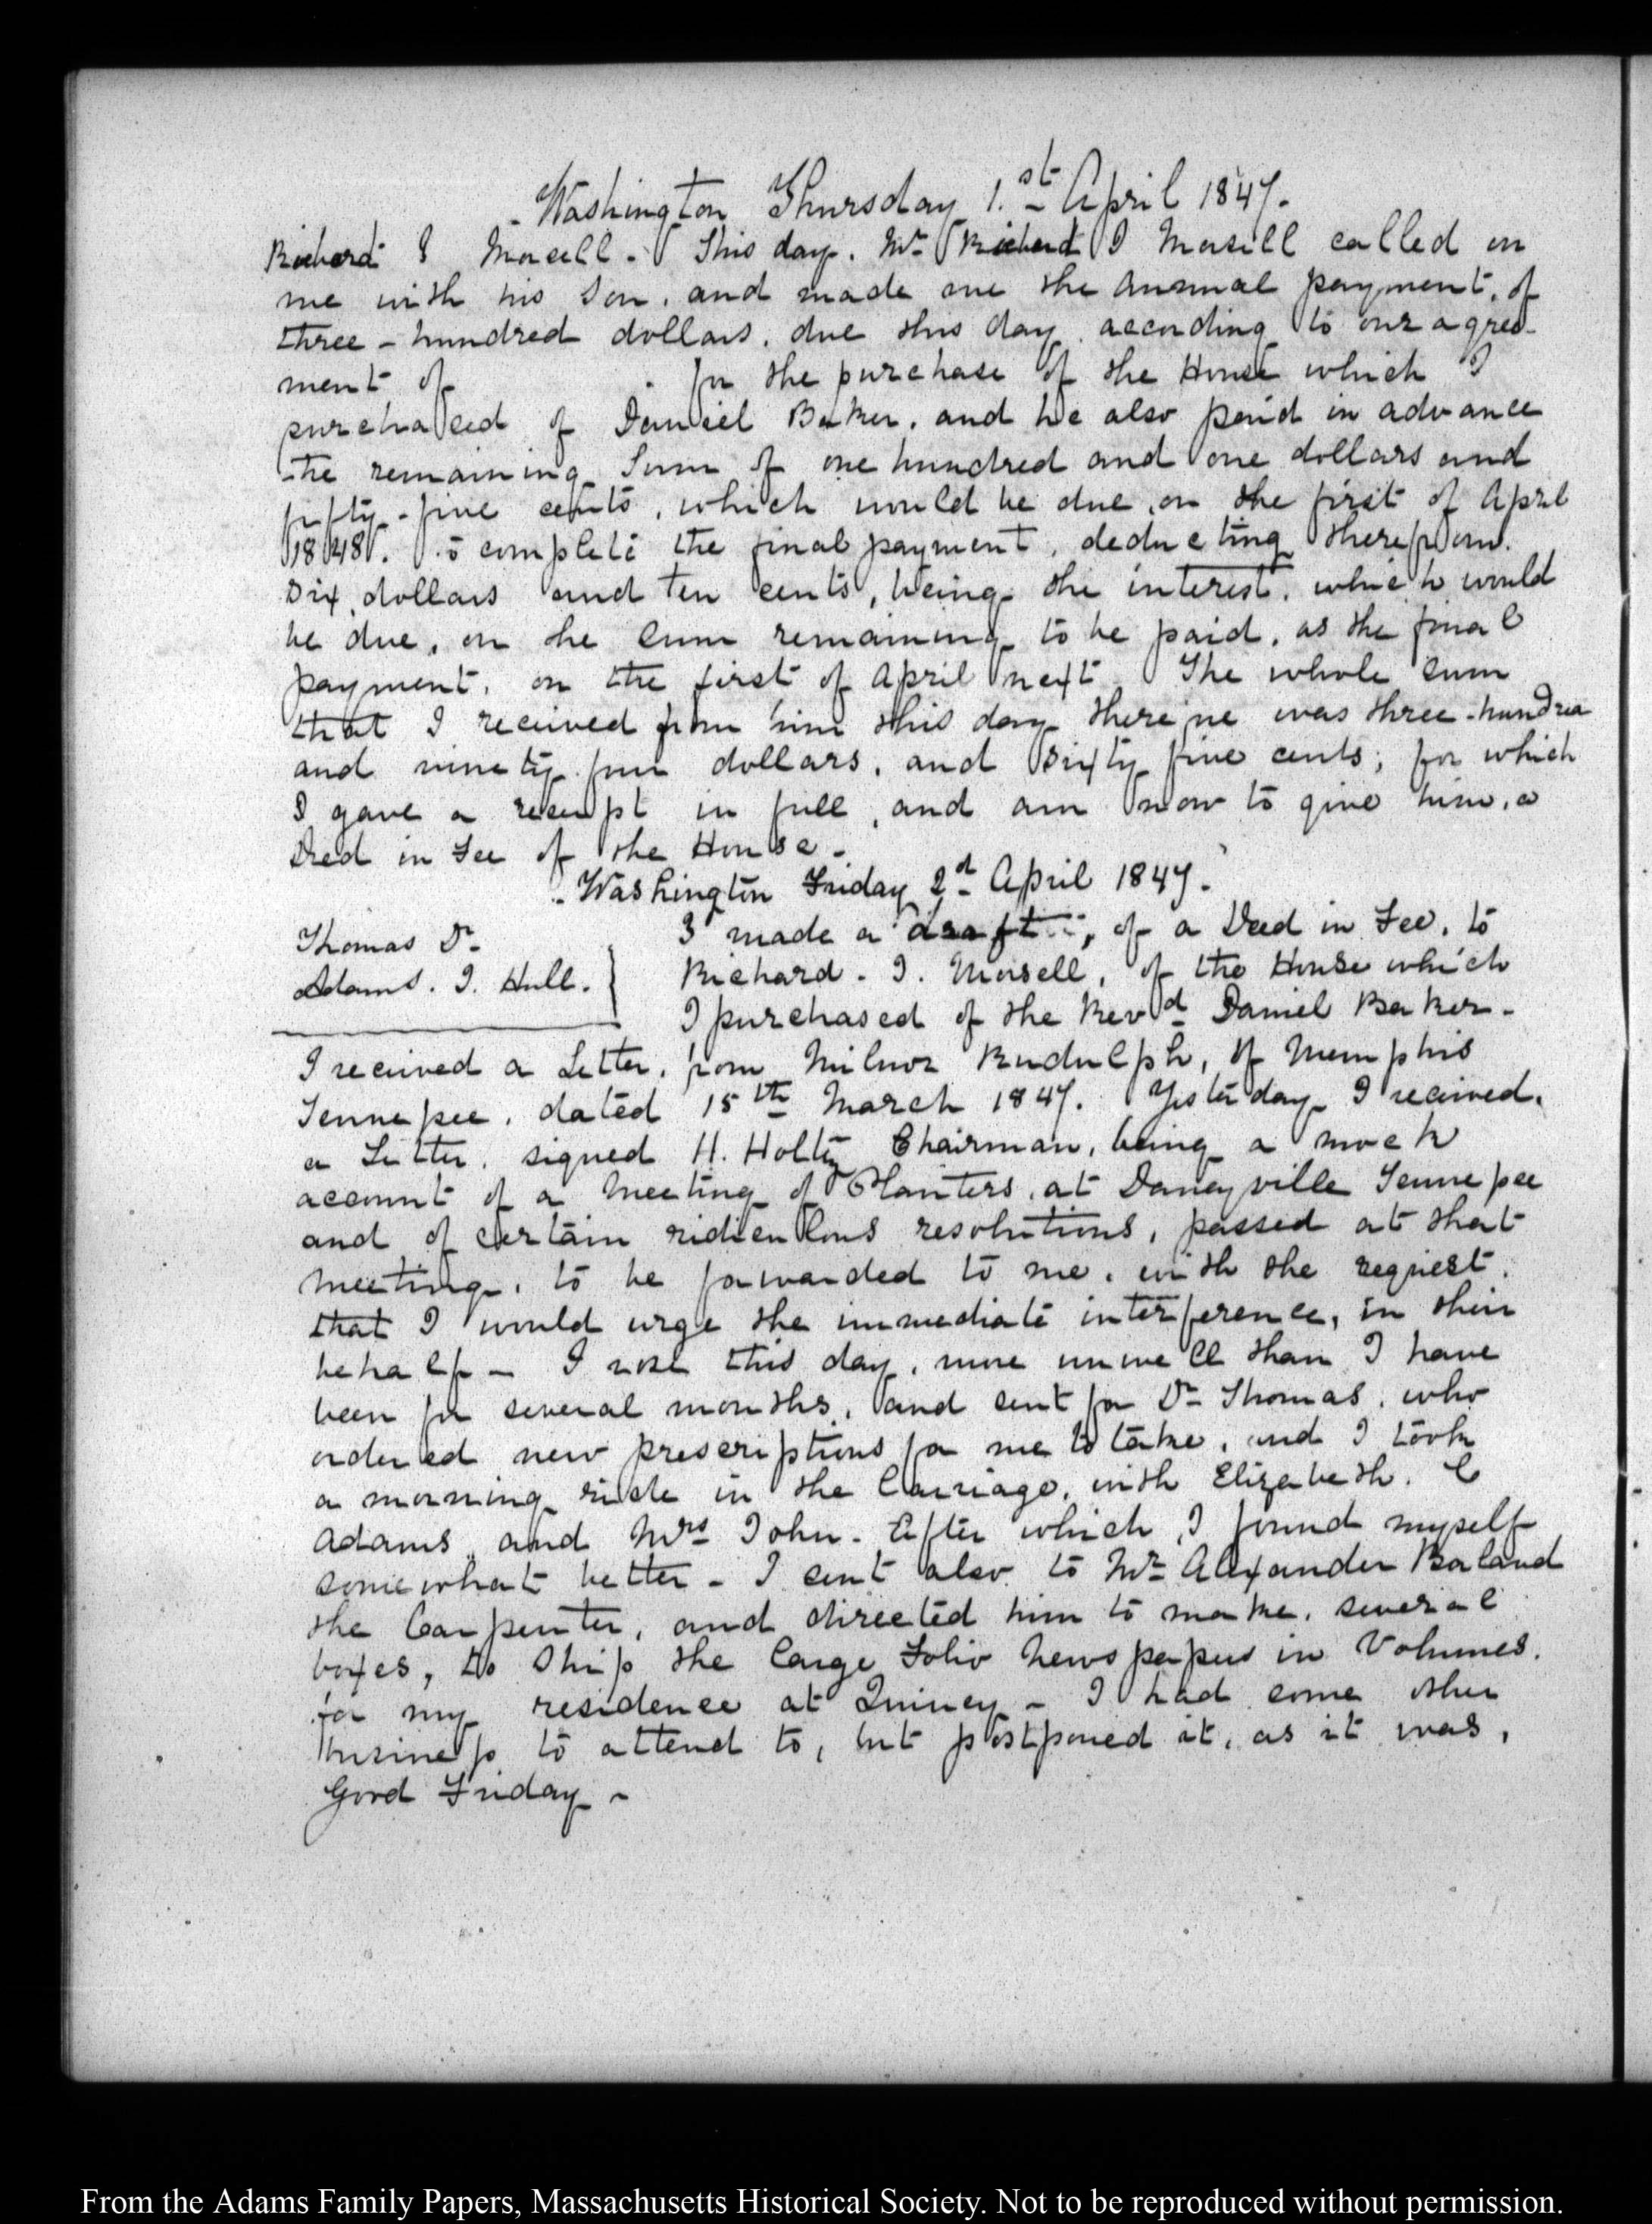 Washington Thursday 1.st April 1847.
Richard I Morsell. This day. Mr Richard I Morsell called on
me with his Son, and made me the annual payment, of
three-hundred dollars, due this day according to our agree-
ment of . for the purchase of the House which I
purchased of Daniel Baker, and he also paid in advance
the remaining Sum of one hundred and one dollars and
fifty-five cents, which would be due, on the first of April
1848. to complete the final payment, deducting therefrom.
Six dollars and ten cents, being the interest, which would
be due, on the Sum remaining to be paid, as the final
payment, on the first of April next. The whole sum
that I received from him this day therefore was three-hundred
and ninety four dollars, and sixty five cents; for which
I gave a receipt in full, and am now to give him, a
Deed in Fee of the House-
Washington Friday 2d April 1847.
Thomas Dr
Adams. I. Hull.
I made a draft, of a Deed in Fee, to
Richard. I. Morsell, of the House which
I purchased of the Revd Daniel Baker-
I received a Letter, from Milnor Rudulph, of Memphis
Tennessee, dated 15th March 1847. Yesterday I received.
a Letter, signed H. Holtz Chairman, being a mock
account of a Meeting of Planters, at Danceyville Tennessee
and of certain ridiculous resolutions, passed at that
meeting, to be forwarded to me, with the request.
that I would urge the immediate interference, in their
behalf- I rose this day, more unwell than I have
been for several months, and sent for Dr Thomas, who
ordered new prescriptions for me to take, and I took
a morning ride in the Carriage, with Elizabeth. C
Adams and Mrs John. After which, I found myself
somewhat better- I sent also to Mr Alexander Boland
the Carpenter, and directed him to make, several
boxes, to Ship the large Folio Newspapers in Volumes.
for my residence at Quincy- I had some other
business to attend to, but postponed it, as it was,
Good Friday-
From the Adams Family Papers, Massachusetts Historical Society. Not to be reproduced without permission.